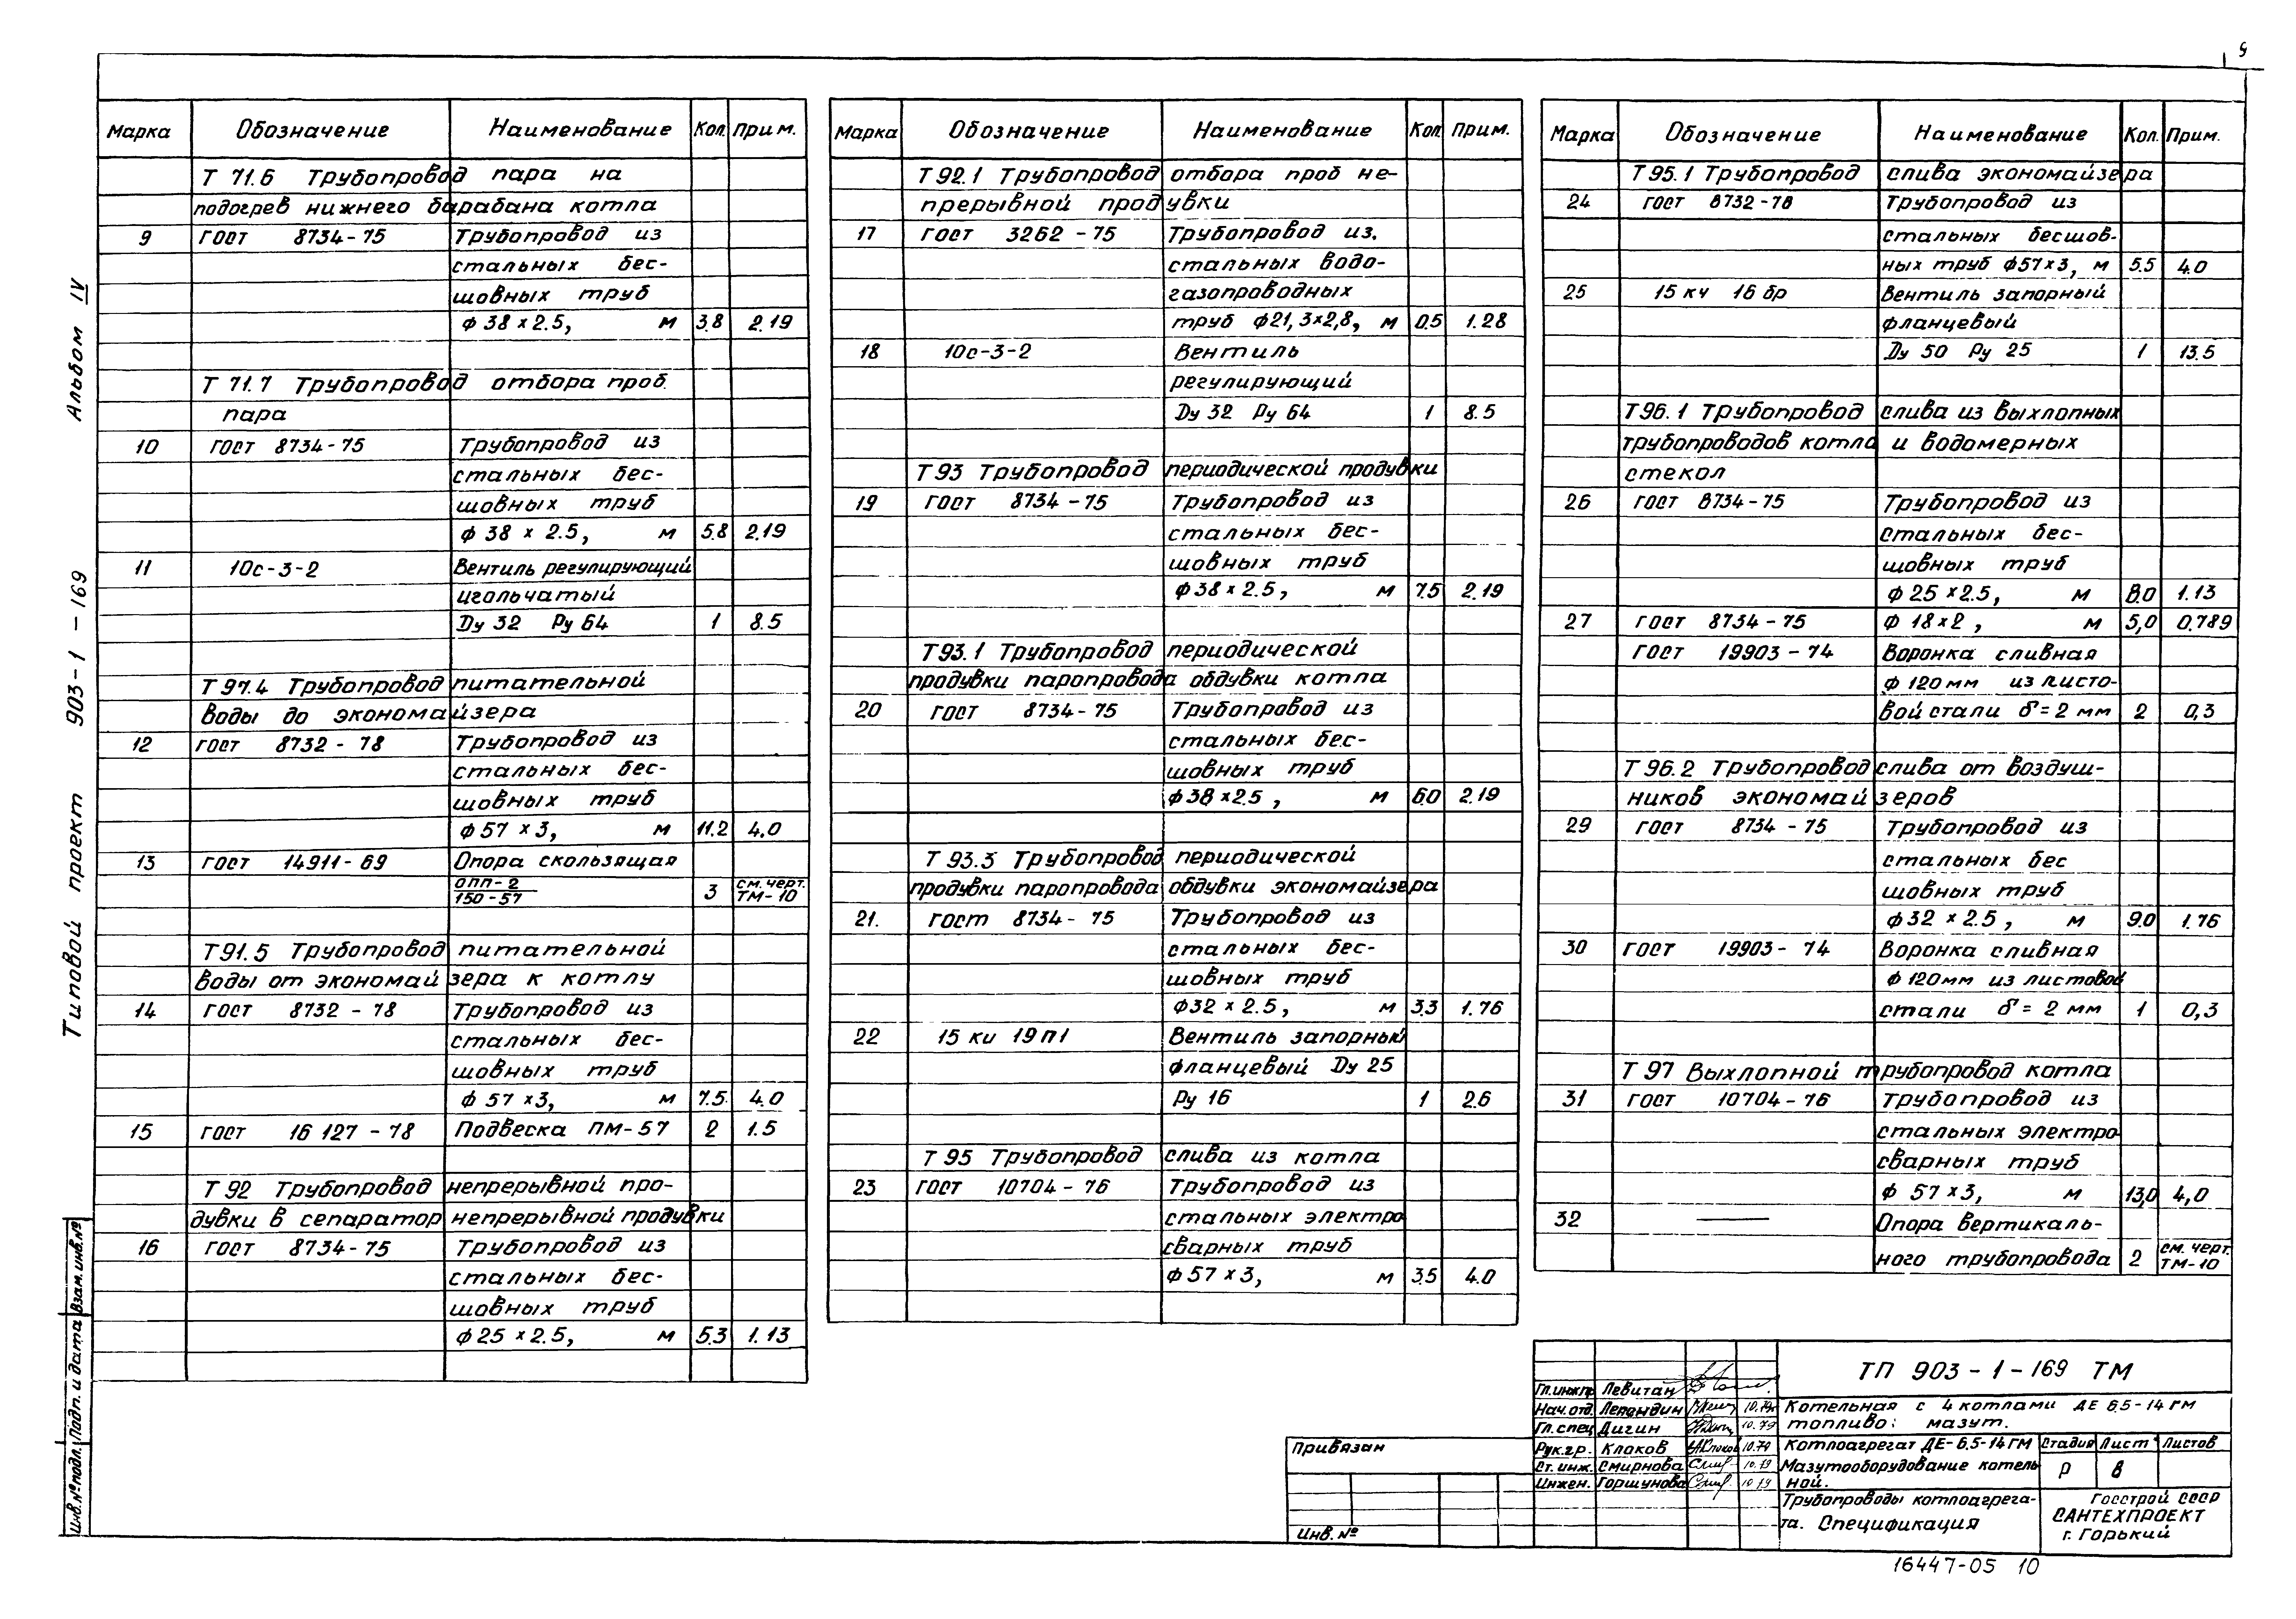 9
Альбом IV
Типовой проект 903-1-169
Марка Обозначение Наименование Кол. Прим.
Т 71.6 Трубопровод пара на
подогрев нижнего барабана котла
9 ГОСТ 8734-75 Трубопровод из
стальных бес-
шовных труб
ф 38 × 2.5, м 3.8 2.19
Т 71.7 Трубопровод отбора проб.
пара
10 ГОСТ 8734-75 Трубопровод из
стальных бес-
шовных труб
ф 38 × 2.5, м 5.8 2.19
11 10с-3-2 Вентиль регулирующий
игольчатый
Ду 32 Ру 64 1 8.5
Т 91.4 Трубопровод питательной
воды до экономайзера
12 ГОСТ 8732-78 Трубопровод из
стальных бес-
шовных труб
ф 57 × 3, м 11.2 4.0
13 ГОСТ 14911-69 Опора скользящая
ОПП-2
150-57 3 см. черт. ТМ-10
Т 91.5 Трубопровод питательной
воды от экономайзера к котлу
14 ГОСТ 8732-78 Трубопровод из
стальных бес-
шовных труб
ф 57 × 3, м 7.5 4.0
15 ГОСТ 16 127-78 Подвеска ПМ-57 2 1.5
Т 92 Трубопровод непрерывной про-
дувки в сепаратор непрерывной продувки
16 ГОСТ 8734-75 Трубопровод из
стальных бес-
шовных труб
ф 25 × 2.5, м 5.3 1.13
Марка Обозначение Наименование Кол. Прим.
Т 92.1 Трубопровод отбора проб не-
прерывной продувки
17 ГОСТ 3262-75 Трубопровод из.
стальных водо-
газопроводных
труб ф21,3×2,8, м 0.5 1.28
18 10с-3-2 Вентиль
регулирующий
Ду 32 Ру 64 1 8.5
Т 93 Трубопровод периодической продувки
19 ГОСТ 8734-75 Трубопровод из
стальных бес-
шовных труб
ф 38 × 2.5, м 7.5 2.19
Т 93.1 Трубопровод периодической
продувки паропровода обдувки котла
20 ГОСТ 8734-75 Трубопровод из
стальных бес-
шовных труб
ф 38 × 2.5, м 6.0 2.19
Т 93.3 Трубопровод периодической
продувки паропровода обдувки экономайзера
21. ГОСТ 8734-75 Трубопровод из
стальных бес-
шовных труб
ф32 × 2.5, м 3.3 1.76
22 15 ки 19 п1 Вентиль запорный
фланцевый Ду 25
Ру 16 1 2.6
Т 95 Трубопровод слива из котла
23 ГОСТ 10704-76 Трубопровод из
стальных электро
сварных труб
ф 57 × 3, м 3.5 4.0
Марка Обозначение Наименование Кол. Прим.
Т 95.1 Трубопровод слива экономайзера
24 ГОСТ 8732-78 Трубопровод из
стальных бесшов-
ных труб ф57×3, м 5.5 4.0
25 15 кч 16 бр Вентиль запорный
фланцевый
Ду 50 Ру 25 1 13.5
Т 96.1 Трубопровод слива из выхлопных
трубопроводов котла и водомерных
стекол
26 ГОСТ 8734-75 Трубопровод из
стальных бес-
шовных труб
ф 25 × 2.5, м 8.0 1.13
27 ГОСТ 8734-75 ф 18×2, м 5,0 0.789
ГОСТ 19903-74 Воронка сливная
ф 120 мм из листо-
вой стали δ = 2 мм 2 0,3
Т 96.2 Трубопровод слива от воздуш-
ников экономайзеров
29 ГОСТ 8734-75 Трубопровод из
стальных бес
шовных труб
ф 32 × 2.5, м 9.0 1.76
30 ГОСТ 19903-74 Воронка сливная
ф 120мм из листовой
стали δ = 2 мм 1 0,3
Т 97 Выхлопной трубопровод котла
31 ГОСТ 10704-76 Трубопровод из
стальных электро
сварных труб
ф 57 × 3, м 13,0 4,0
32 — Опора вертикаль-
ного трубопровода 2 см. черт. ТМ-10
Взам. инв. №
Подп. и дата
Инв. № подл.
Привязан
Инв. №
Гл. инж. пр Левитан
Нач. отд. 10.79
Гл. спец Дигин 10.79
Рук. гр. Клоков 10.79
Ст. инж. Смирнова 10.79
Инжен. Горшунова 10.79
ТП 903-1-169 ТМ
Котельная с 4 котлами ДЕ 6.5-14 ГМ
топливо: мазут.
Котлоагрегат ДЕ-6,5-14 ГМ
Мазутооборудование котель
ной.
Стадия Лист Листов
Р 8
Трубопроводы котлоагрега-
та. Спецификация
Госстрой СССР
САНТЕХПРОЕКТ
г. Горький
16447-05 10